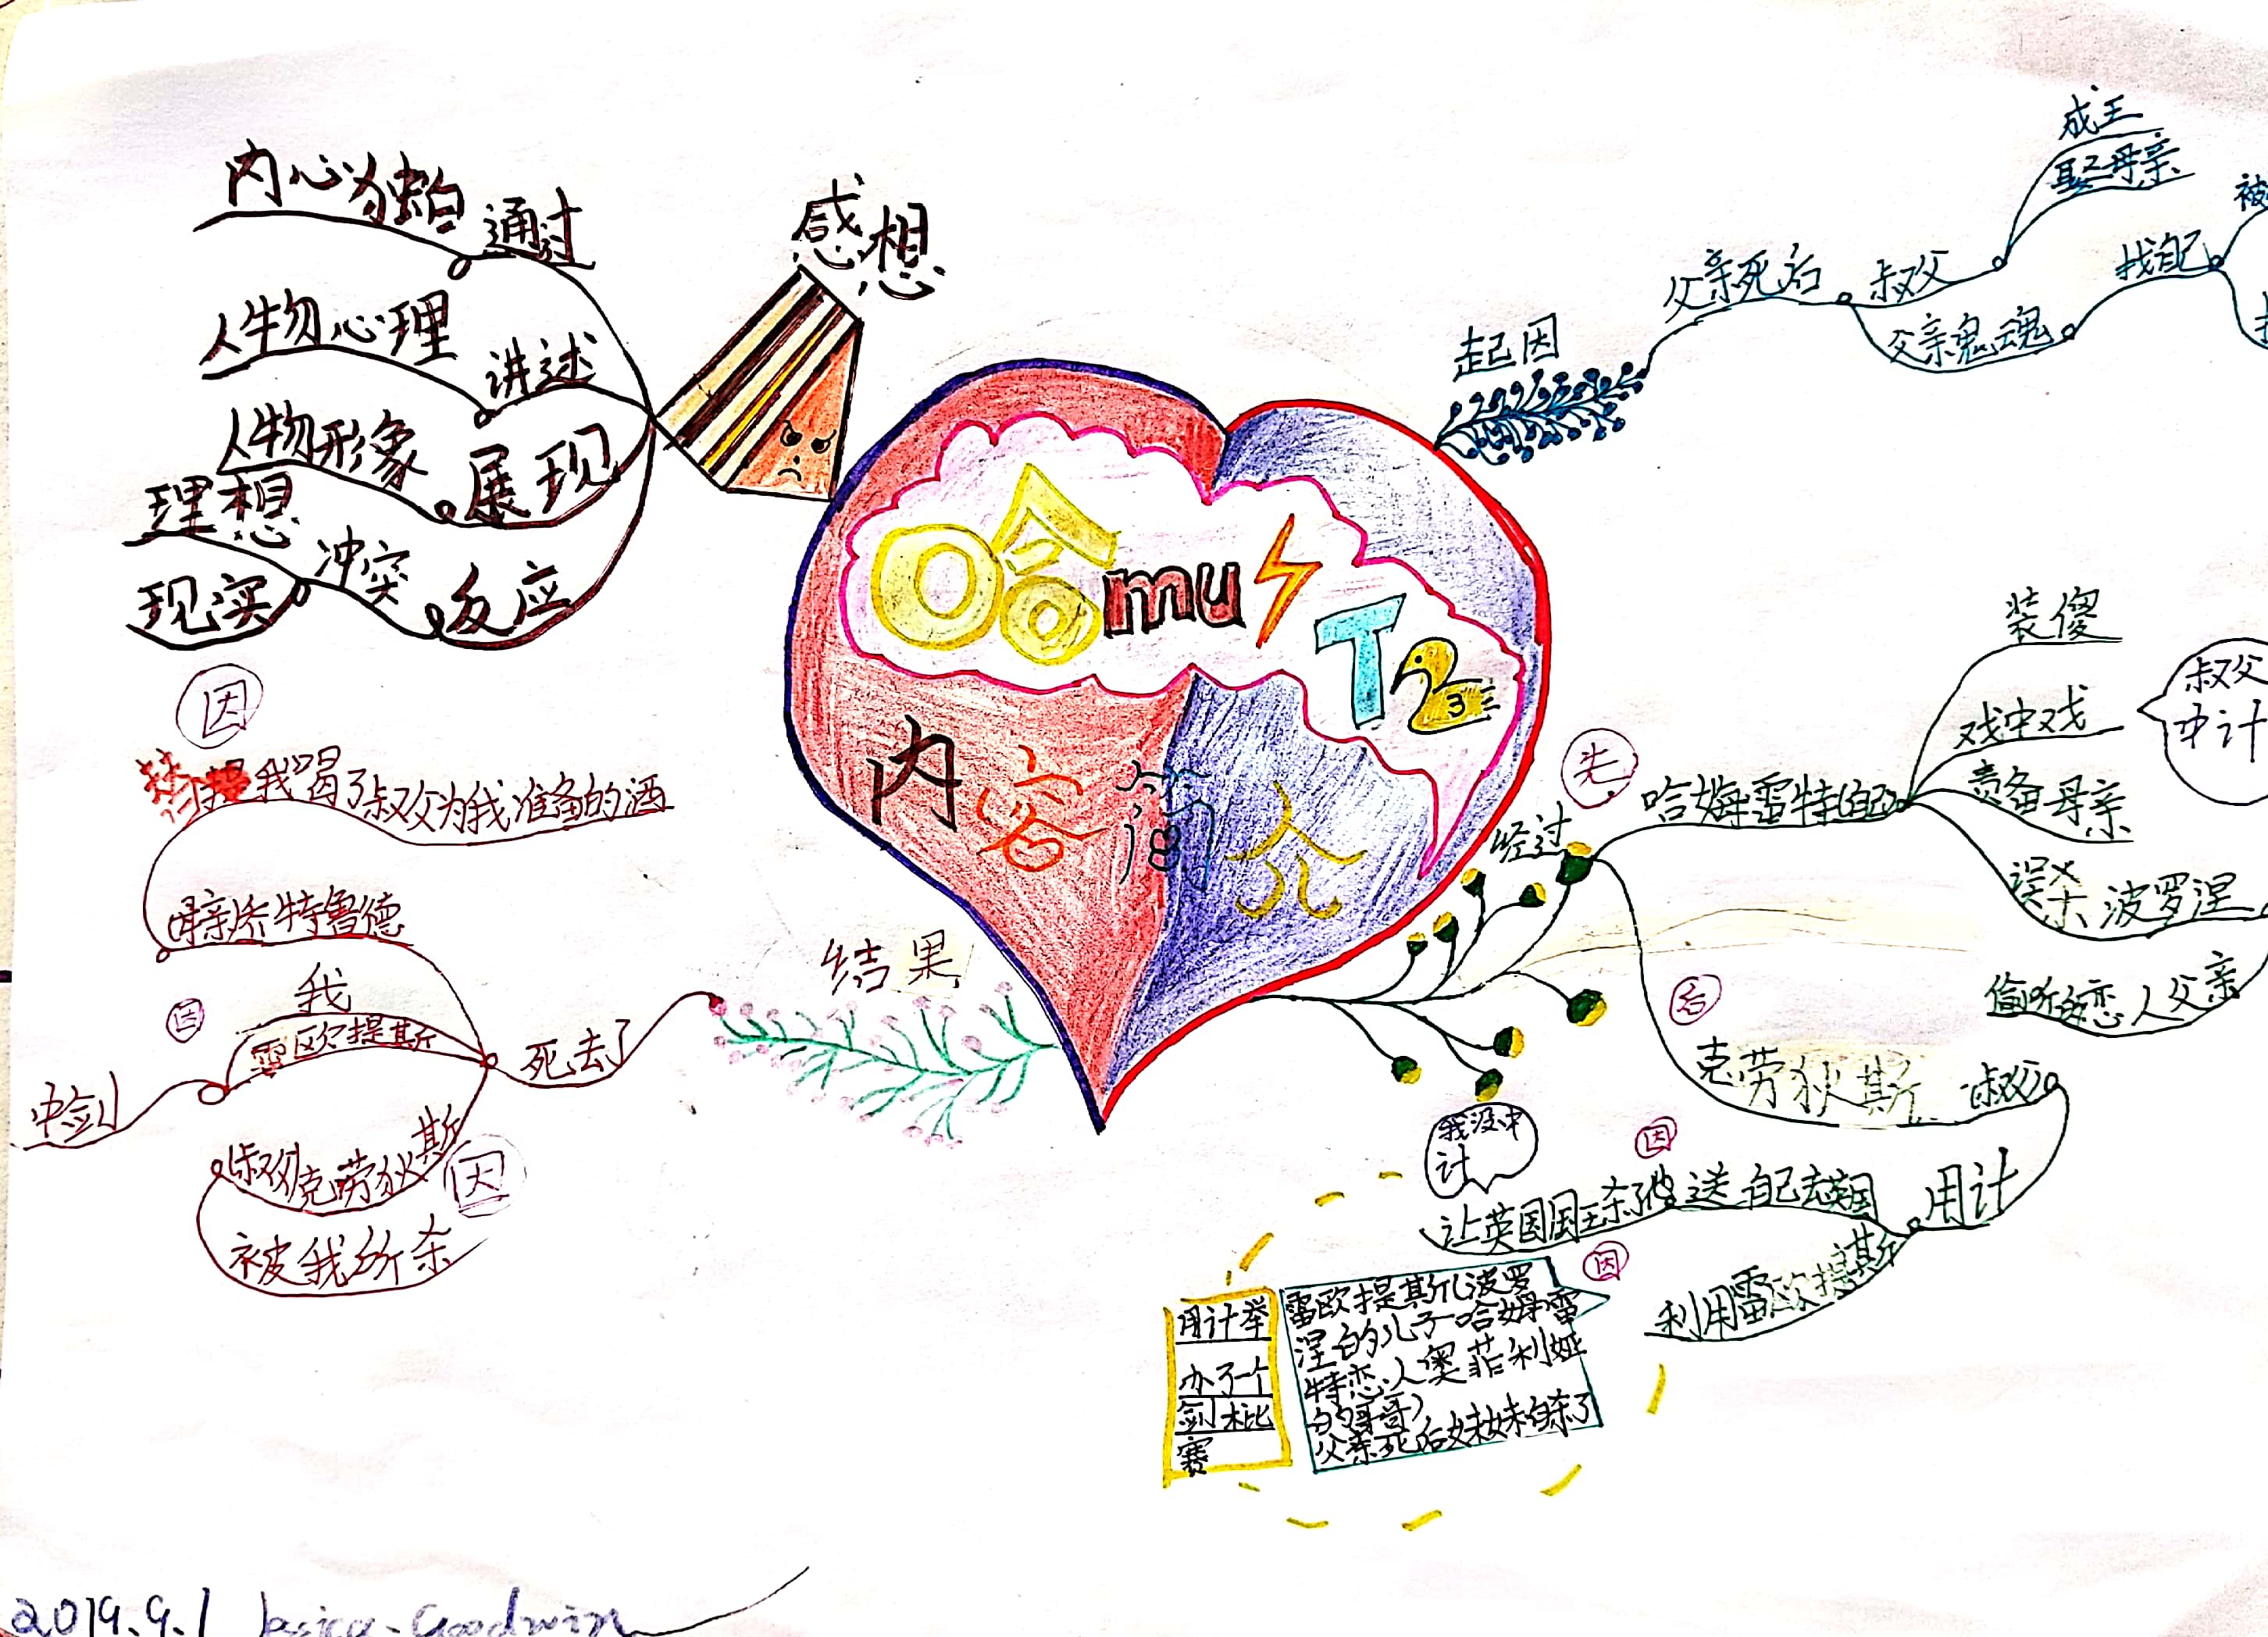 感想
通过
内心独白
讲述
人物心理
展现
人物形象
反应
冲突
理想
现实
哈mu
T2
3
内容简介
起因
父亲死后
叔父
成王
娶母亲
父亲鬼魂
找自己
被
经过
先
哈姆雷特(自己)
装傻
戏中戏
叔父
中计
责备母亲
误杀波罗涅
偷听的恋人父亲
后
克劳狄斯 叔父
用计
送自己去英国
因
让英国国王杀了他
我没中
计
利用雷欧提斯
因
雷欧提斯(波罗
涅的儿子哈姆雷
特恋人奥菲利娅
的哥哥)
父亲死后妹妹自杀了
用计举
办了一个
剑术比
赛
结果
死去了
母亲乔特鲁德
因
我喝了叔父为我准备的酒
我
雷欧提斯
因
中剑
叔父克劳狄斯
因
被我所杀
2019.9.1 Jessica.Goodwin